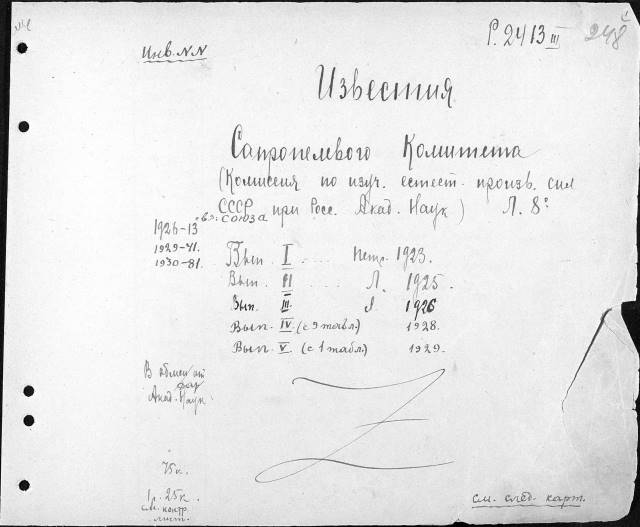 Р. 2413 III
248
Инв. N.N
Известия
Сапропелевого Комитета
(Комиссия по изуч. естест. произв. сил
СССР при Росс. Акад. Наук) Л. 8°
Союза
1926-13
1929-41.
1930-81.
Вып. I ..... Петр. 1923.
Вып. II ..... Л. 1925.
Вып. III 1926
Вып. IV (с 9 табл.) 1928.
Вып. V. (с 1 табл.) 1929.
В обмен от
Акад. Наук
75к.
1р. 25к.
см. контр.
лист.
см. след. карт.